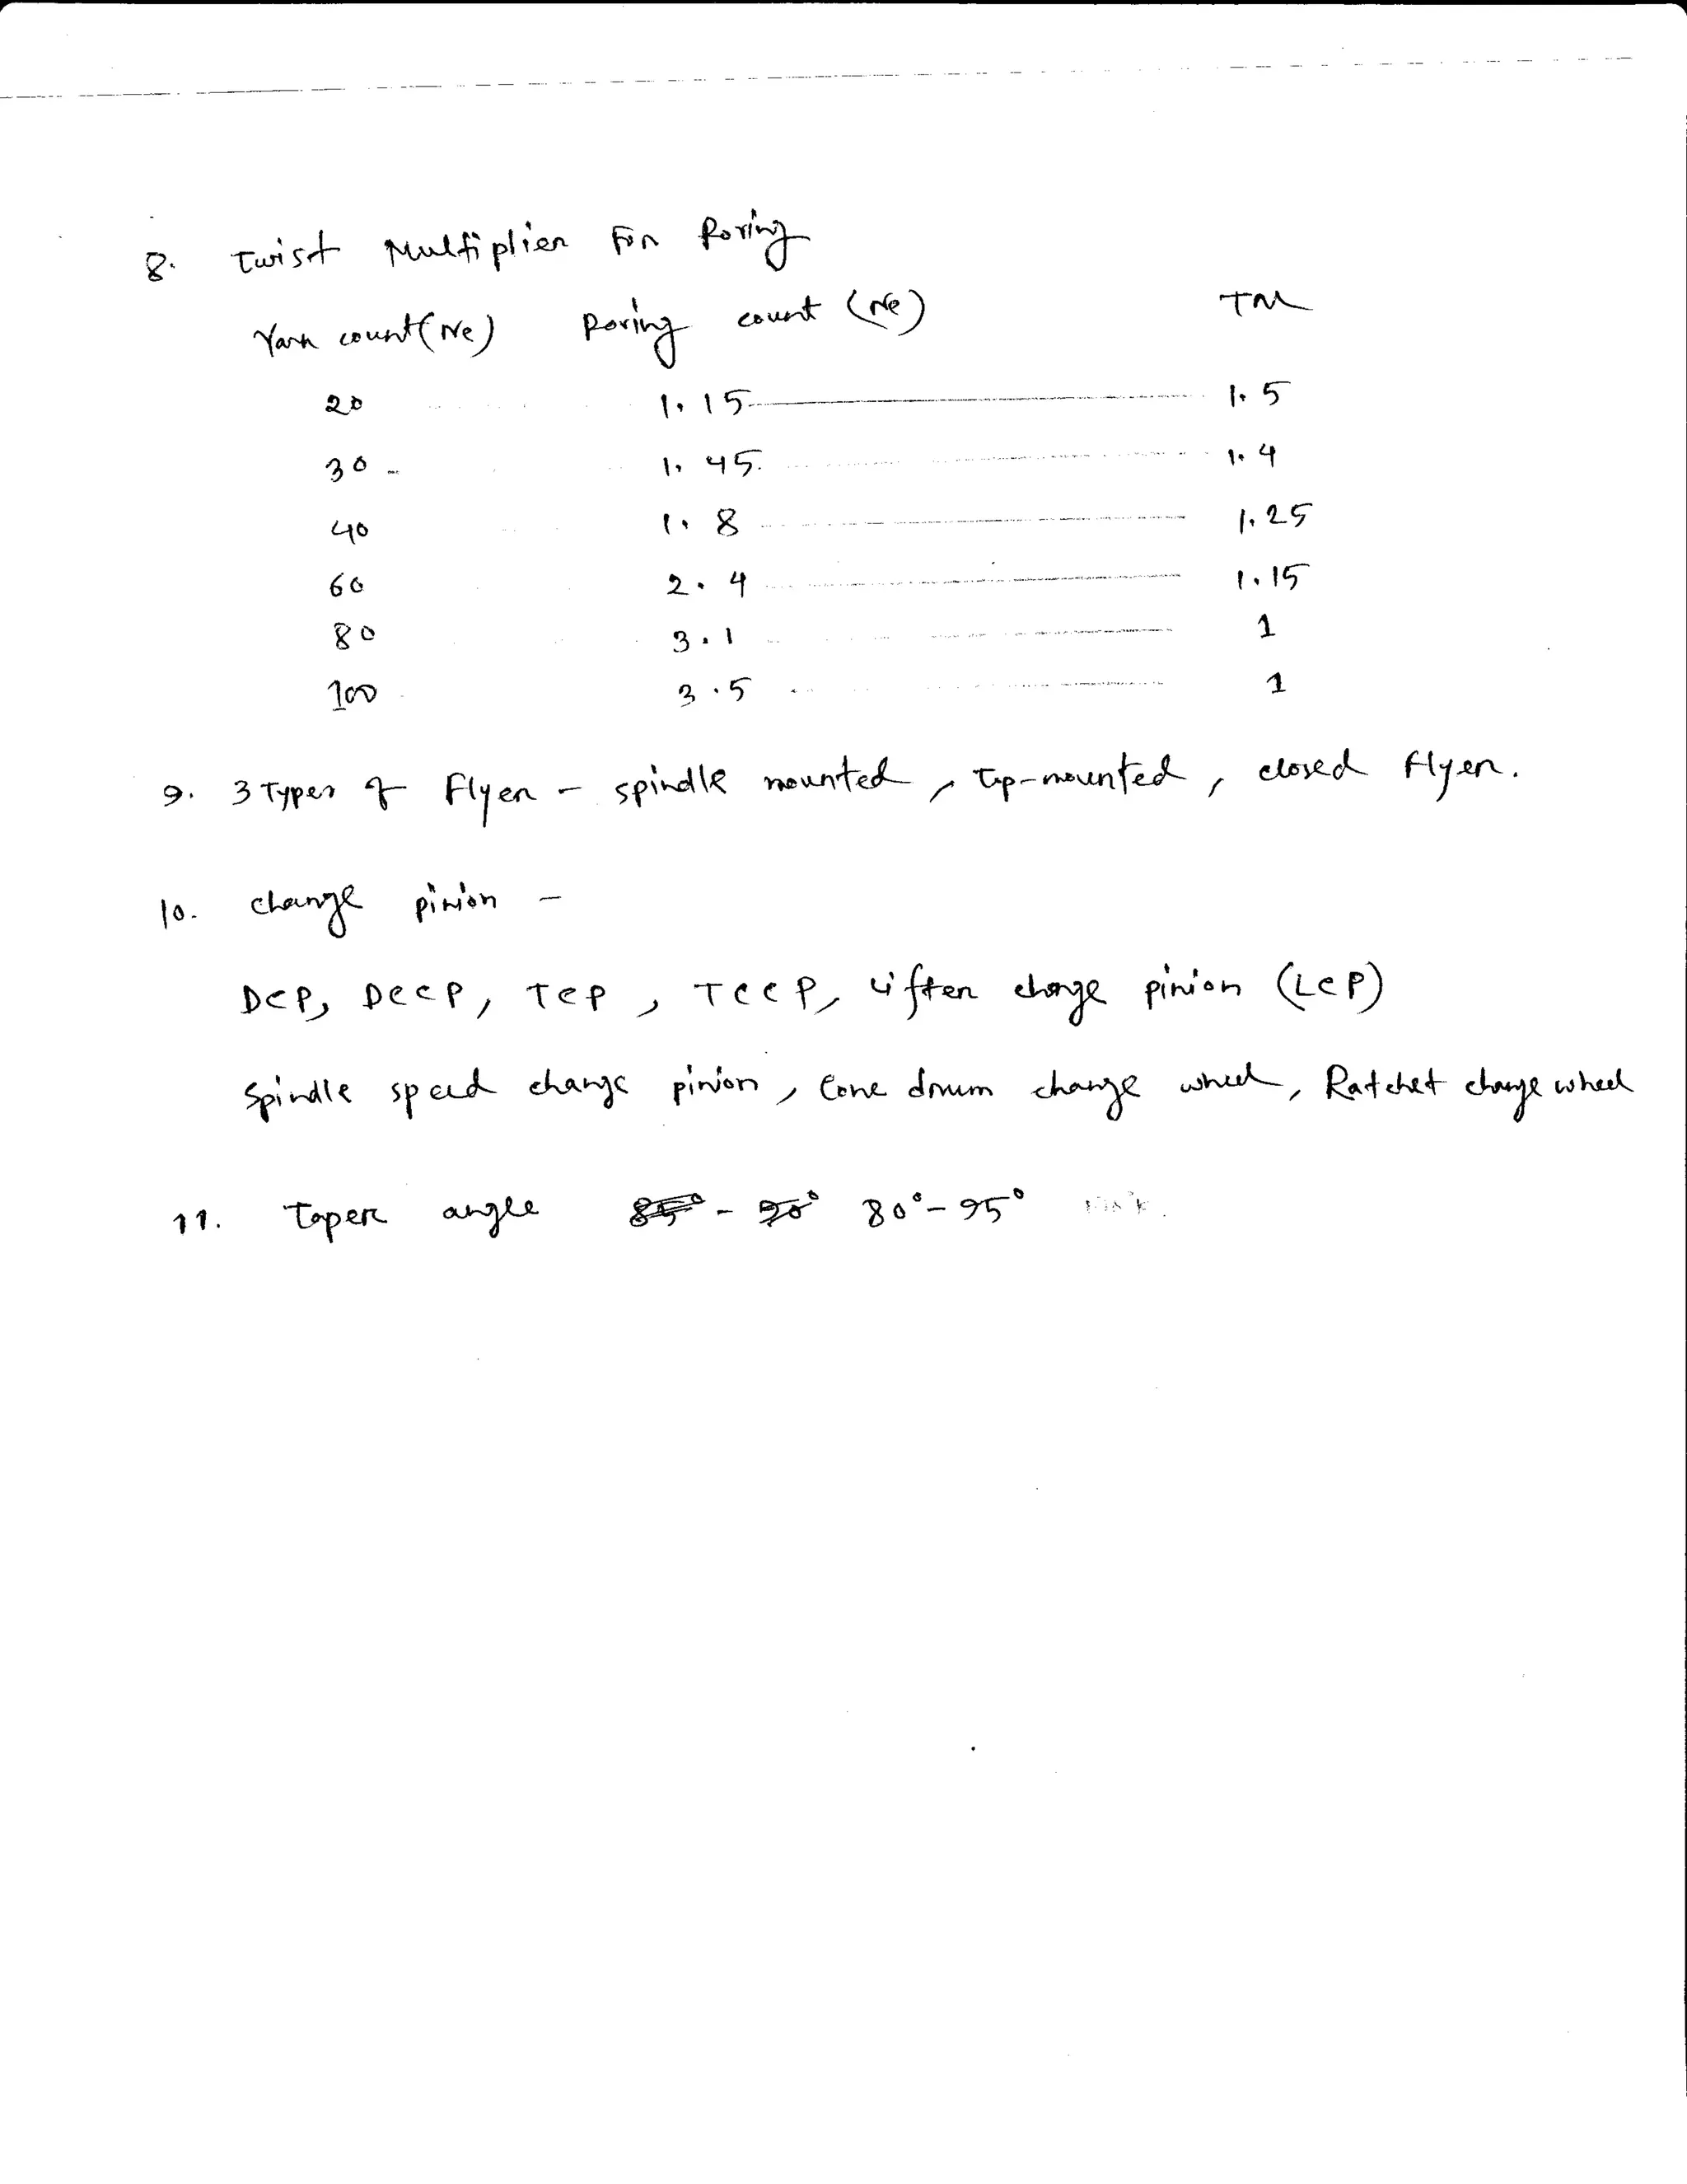 8. Twist Multiplier For Roving
Yarn count (Ne) Roving count (Ne) TM
20 1.15 1.5
30 1.45 1.4
40 1.8 1.25
60 2.4 1.15
80 3.1 1
100 3.5 1
9. 3 Types of Flyer - spindle mounted, Top-mounted, closed flyer.
10. change pinion -
DCP, DCCP, TCP, TCCP, Lifter change pinion (LCP)
Spindle speed change pinion, Cone drum change wheel, Ratchet change wheel
11. Taper angle 85° - 90° 80° - 95°